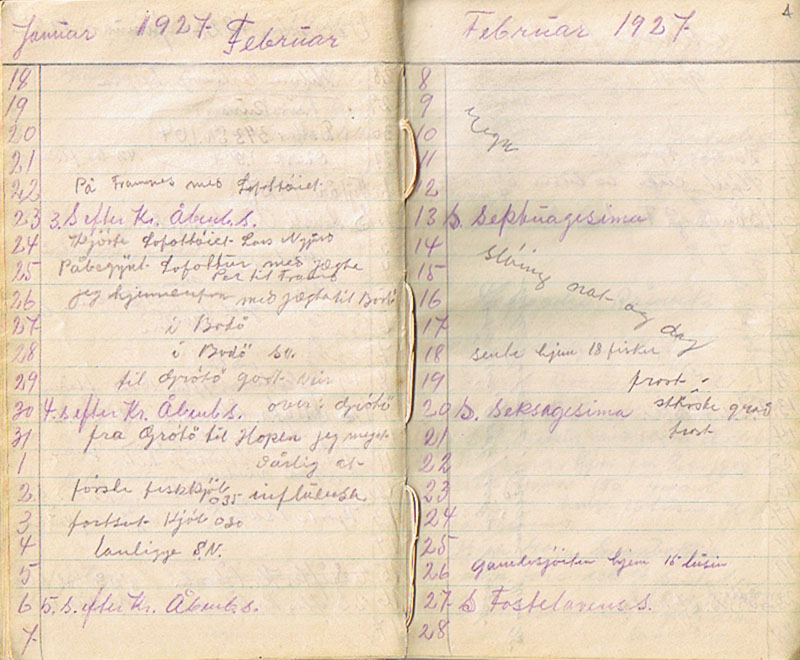 Januar 1927. Februar
18
19
20
21
22 På Framnes med Lofottöiet
23 3. S. efter Kr. Åbenb. S.
24 Kjörte Lofottöiet Lars Nyjord
25 Påbegynt Lofottur med jægta
Per til
26 jeg hjemmefra med jægta til Bodö
27 i Bodö
28 i Bodö
29 til Grötö godt veir
30 4. S. efter Kr. Åbenb. S. over i Grötö
31 fra Grötö til Hopen jeg meget
1 dårlig at
2 förste fiskkjöb 035 influensa
3 fortsat kjöb 030
4 landligge S.V.
5
6 5. S. efter Kr. Åbenb. S.
7
Februar 1927. 4
8
9
10
11
12
13 S. Septuagesima
14
15
16
17
nat og dag
18 sente hjem 18 fisker
19 frost
20 S. Seksagesima
21 frost
22
23
24
25
26 hjem 15 tusen
27 S. Fastelavens S.
28